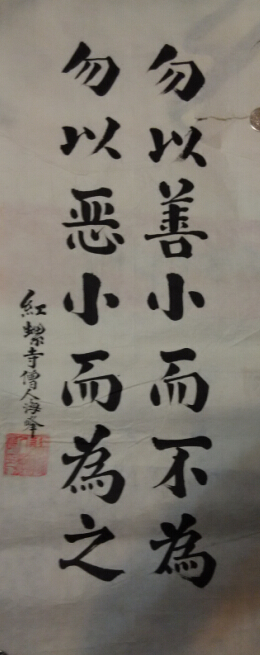 勿以善小而不為
勿以恶小而為之
紅螺寺僧人海峰